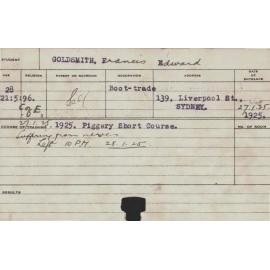 STUDENT GOLDSMITH, Francis Edward
AGE RELIGION PARENT OR GUARDIAN OCCUPATION ADDRESS DATE OF ENTRANCE
28 Boot-trade
21:5:96. Self 139, Liverpool St., 27.1.25.
C of E. SYDNEY. 1925.
COURSE OF TRAINING 1925. Piggery Short Course. NO. OF ROOM
27.1.25
Suffering from nerves
Left 10 P.M. 28.1.25
RESULTS